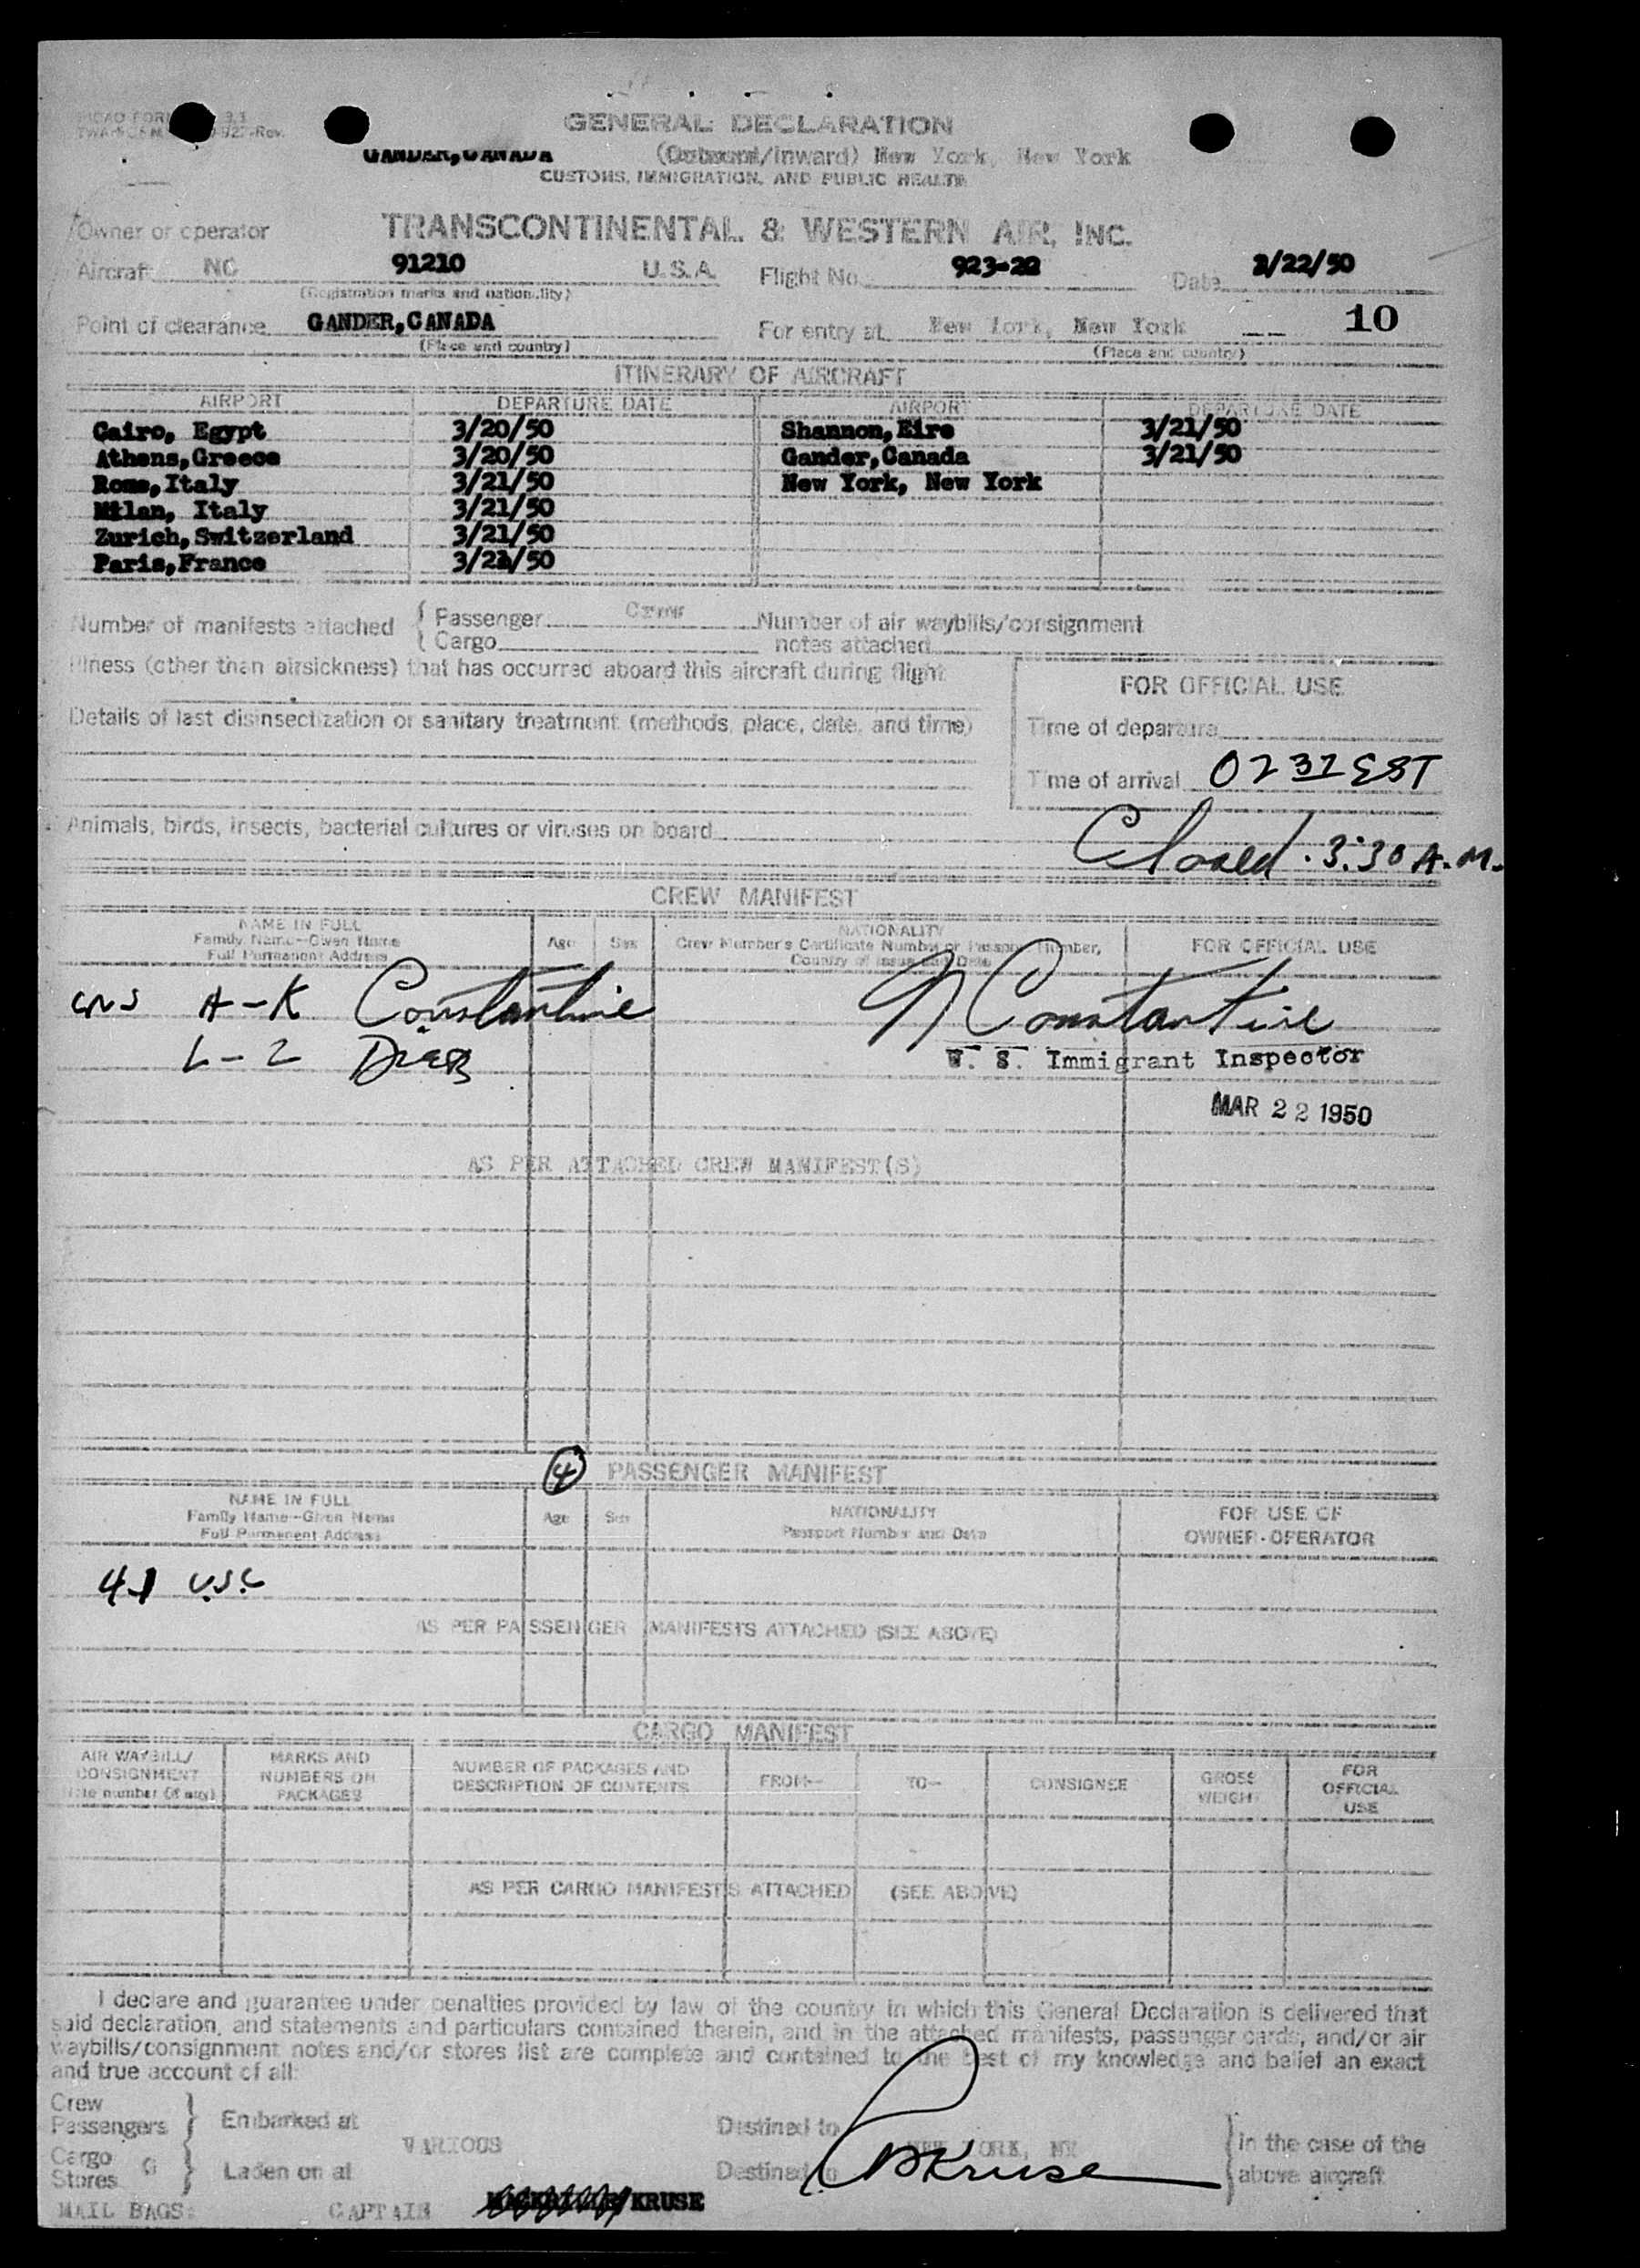 GENERAL DECLARATION
GANDER, CANADA (Outbound/Inward) New York, New York
CUSTOMS, IMMIGRATION, AND PUBLIC HEALTH
Owner or operator TRANSCONTINENTAL & WESTERN AIR, INC.
Aircraft NC 91210 U.S.A. Flight No. 923-22 Date 3/22/50
(Registration marks and nationality)
Point of clearance GANDER, CANADA For entry at New York, New York 10
(Place and country) (Place and country)
ITINERARY OF AIRCRAFT
AIRPORT DEPARTURE DATE AIRPORT DEPARTURE DATE
Cairo, Egypt 3/20/50 Shannon, Eire 3/21/50
Athens, Greece 3/20/50 Gander, Canada 3/21/50
Rome, Italy 3/21/50 New York, New York
Milan, Italy 3/21/50
Zurich, Switzerland 3/21/50
Paris, France 3/21/50
Number of manifests attached { Passenger Crew Number of air waybills/consignment
{ Cargo notes attached
Illness (other than airsickness) that has occurred aboard this aircraft during flight
FOR OFFICIAL USE
Details of last disinsectization or sanitary treatment (methods, place, date, and time)
Time of departure
Time of arrival 0232 EST
Animals, birds, insects, bacterial cultures or viruses on board
Closed. 3:30 A.M.
CREW MANIFEST
NAME IN FULL
Family Name—Given Name
Full Permanent Address
Age Sex
NATIONALITY
Crew Member's Certificate Number or Passport Number,
Country of Issue and Date
FOR OFFICIAL USE
A-K Constantine N Constantine
L-Z
U. S. Immigrant Inspector
MAR 22 1950
AS PER ATTACHED CREW MANIFEST(S)
4 PASSENGER MANIFEST
NAME IN FULL
Family Name—Given Name
Full Permanent Address
Age Sex
NATIONALITY
Passport Number and Date
FOR USE OF
OWNER-OPERATOR
41 USC
AS PER PASSENGER MANIFESTS ATTACHED (SEE ABOVE)
CARGO MANIFEST
AIR WAYBILL/
CONSIGNMENT
Note number (if any)
MARKS AND
NUMBERS ON
PACKAGES
NUMBER OF PACKAGES AND
DESCRIPTION OF CONTENTS
FROM—
TO—
CONSIGNEE
GROSS
WEIGHT
FOR
OFFICIAL
USE
AS PER CARGO MANIFESTS ATTACHED (SEE ABOVE)
I declare and guarantee under penalties provided by law of the country in which this General Declaration is delivered that
said declaration, and statements and particulars contained therein, and in the attached manifests, passenger cards, and/or air
waybills/consignment notes and/or stores list are complete and contained to the best of my knowledge and belief an exact
and true account of all:
Crew
Passengers } Embarked at Destined to
VARIOUS NEW YORK, NY } in the case of the
Cargo
Stores } Laden on at Destined to above aircraft
Kruse
MAIL BAGS: CAPTAIN KRUSE